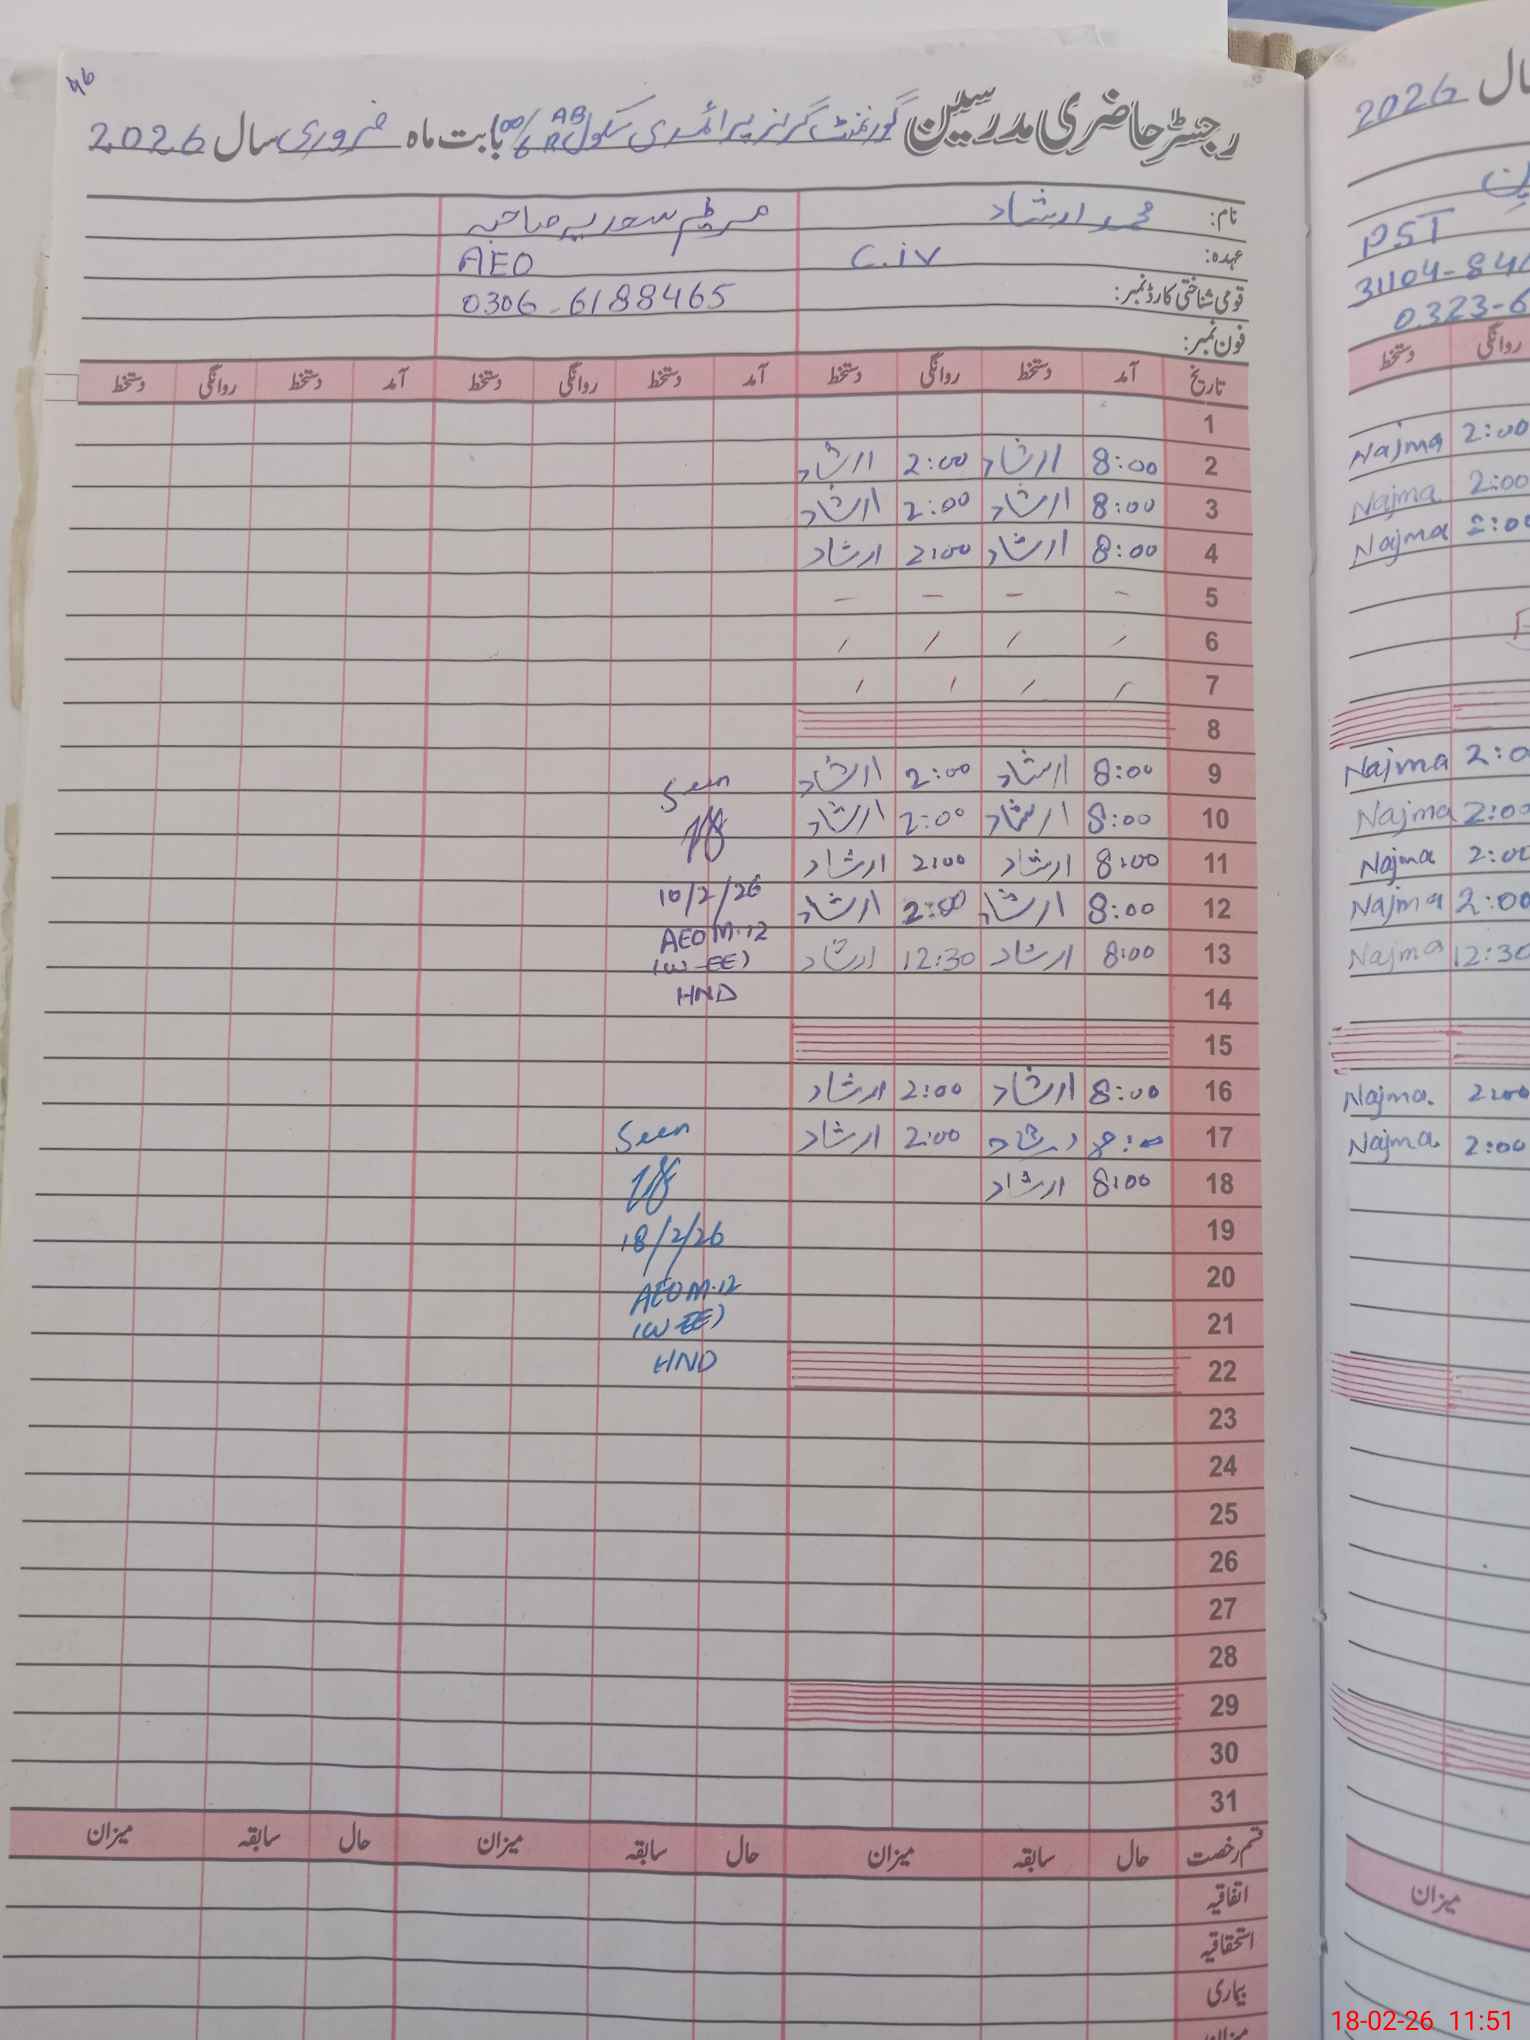 46
رجسٹر حاضری مدرسین گورنمنٹ گرلز پرائمری سکول 100/6R AB بابت ماہ فروری سال 2026
نام: محمد ارشاد مریم سعدیہ صاحبہ
عہدہ: C.iv AEO
قومی شناختی کارڈ نمبر: 0306-6188465
فون نمبر:
تاریخ آمد دستخط روانگی دستخط آمد دستخط روانگی دستخط آمد دستخط روانگی دستخط
1
2 8:00 ارشاد 2:00 ارشاد
3 8:00 ارشاد 2:00 ارشاد
4 8:00 ارشاد 2:00 ارشاد
5 - - - -
6 / / / /
7 / / / /
8
9 8:00 ارشاد 2:00 ارشاد Seen
10 8:00 ارشاد 2:00 ارشاد
11 8:00 ارشاد 2:00 ارشاد
12 8:00 ارشاد 2:00 ارشاد 10/2/26
13 8:00 ارشاد 12:30 ارشاد AEO M.12
(W-EE)
14 HND
15
16 8:00 ارشاد 2:00 ارشاد
17 8:00 ارشاد 2:00 ارشاد Seen
18 8:00 ارشاد
19 18/2/26
20 AEO M.12
21 (W-EE)
22 HND
23
24
25
26
27
28
29
30
31
قسم رخصت حال سابقہ میزان حال سابقہ میزان حال سابقہ میزان
اتفاقیہ
استحقاقیہ
بیماری
میزان
سال 2026
PST
31104-84
0323-6
روانگی دستخط
2:00 Najma
2:00 Najma
2:00 Najma
2:0 Najma
2:00 Najma
2:00 Najma
2:00 Najma
12:30 Najma
2:00 Najma.
2:00 Najma.
میزان
18-02-26 11:51